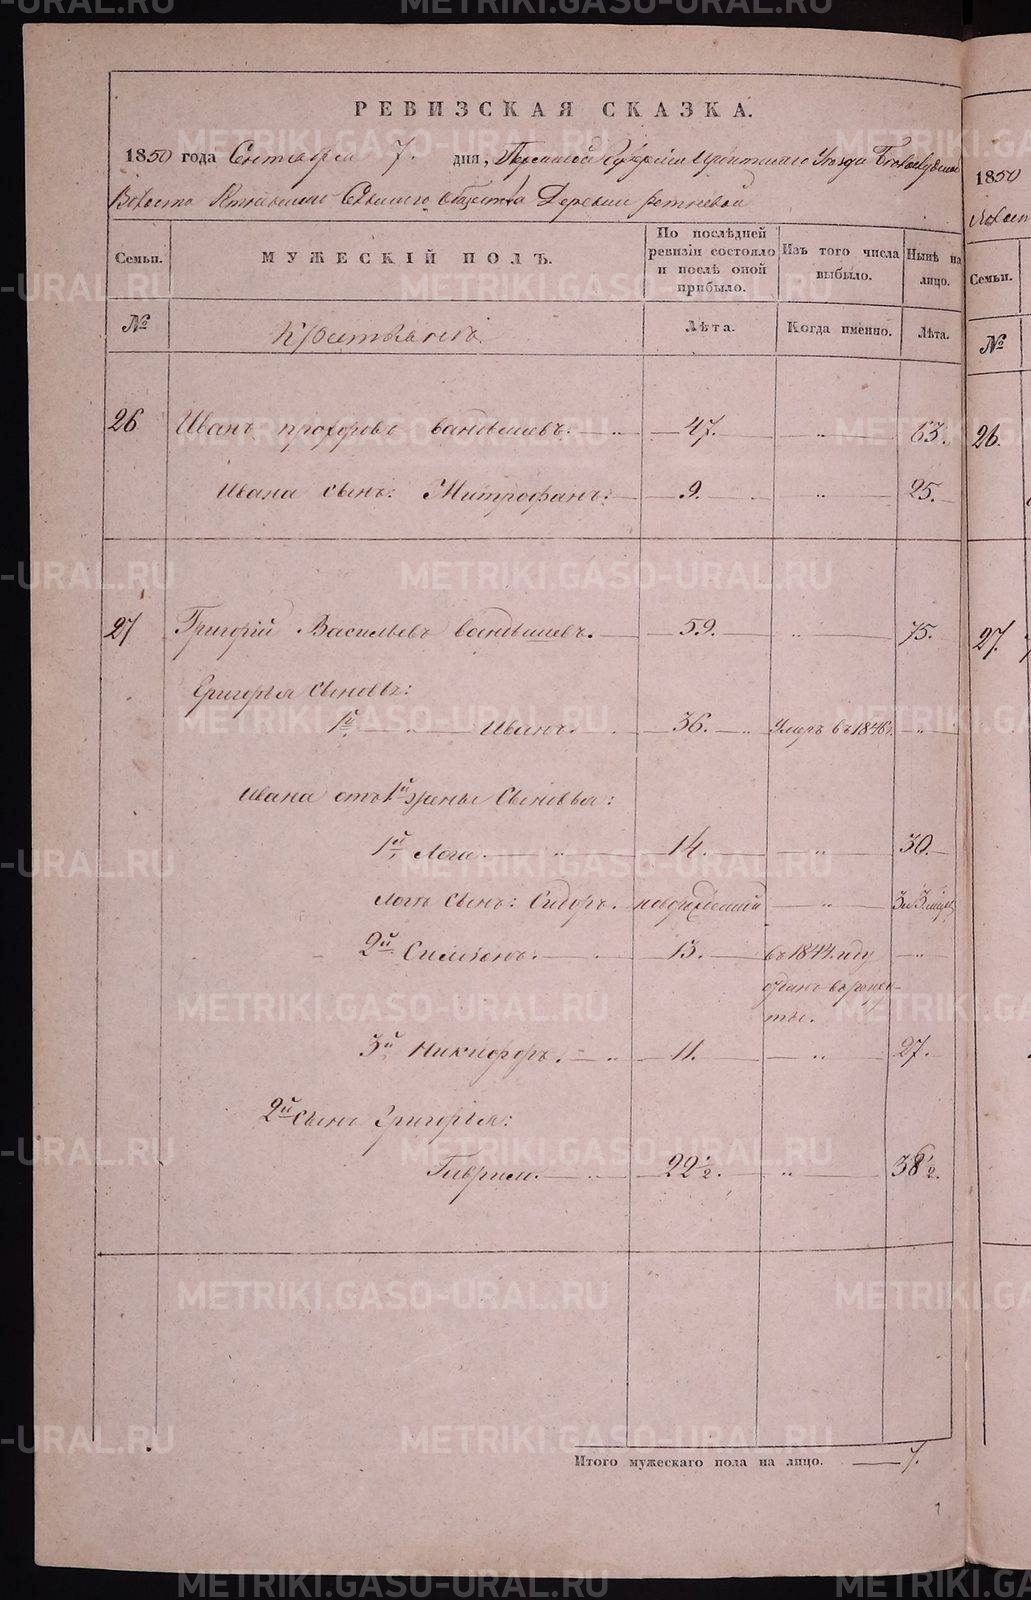 РЕВИЗСКАЯ СКАЗКА.
1850 года Сентября 7. дня, Пермской Губернии Ирбитского Уезда
Волости Сельского общества Деревни Ретневой
Семьи.
МУЖЕСКІЙ ПОЛЪ.
По послѣдней ревизіи состояло и послѣ оной прибыло.
Изъ того числа выбыло.
Нынѣ на лицо.
№
Крестьянъ
Лѣта.
Когда именно.
Лѣта.
26 Иванъ прохоровъ вандышевъ. 47. „ 63.
Ивана сынъ: Митрофанъ: 9. „ 25.
27 Григорій Васильевъ вандышевъ. 59. „ 75.
Григорья Сыновья:
1й Иванъ. 36. „ Умеръ въ 1846г. „
Ивана отъ 1й жены Сыновья:
1й Логи. „ 14. „ 30.
Логи Сынъ: Сидоръ. новорожденный „ 3 и 3. мѣсяц
2й Симеонъ. 13. въ 1844. году „
отданъ в рекру-
ты.
3й Никифоръ. „ 11. „ 27.
2й Сынъ Григорья:
Гаврило. 22 1/2. „ 38 1/2.
Итого мужескаго пола на лицо. 7.
1
1850
Семьи.
№
26.
27.
METRIKI.GASO-URAL.RU